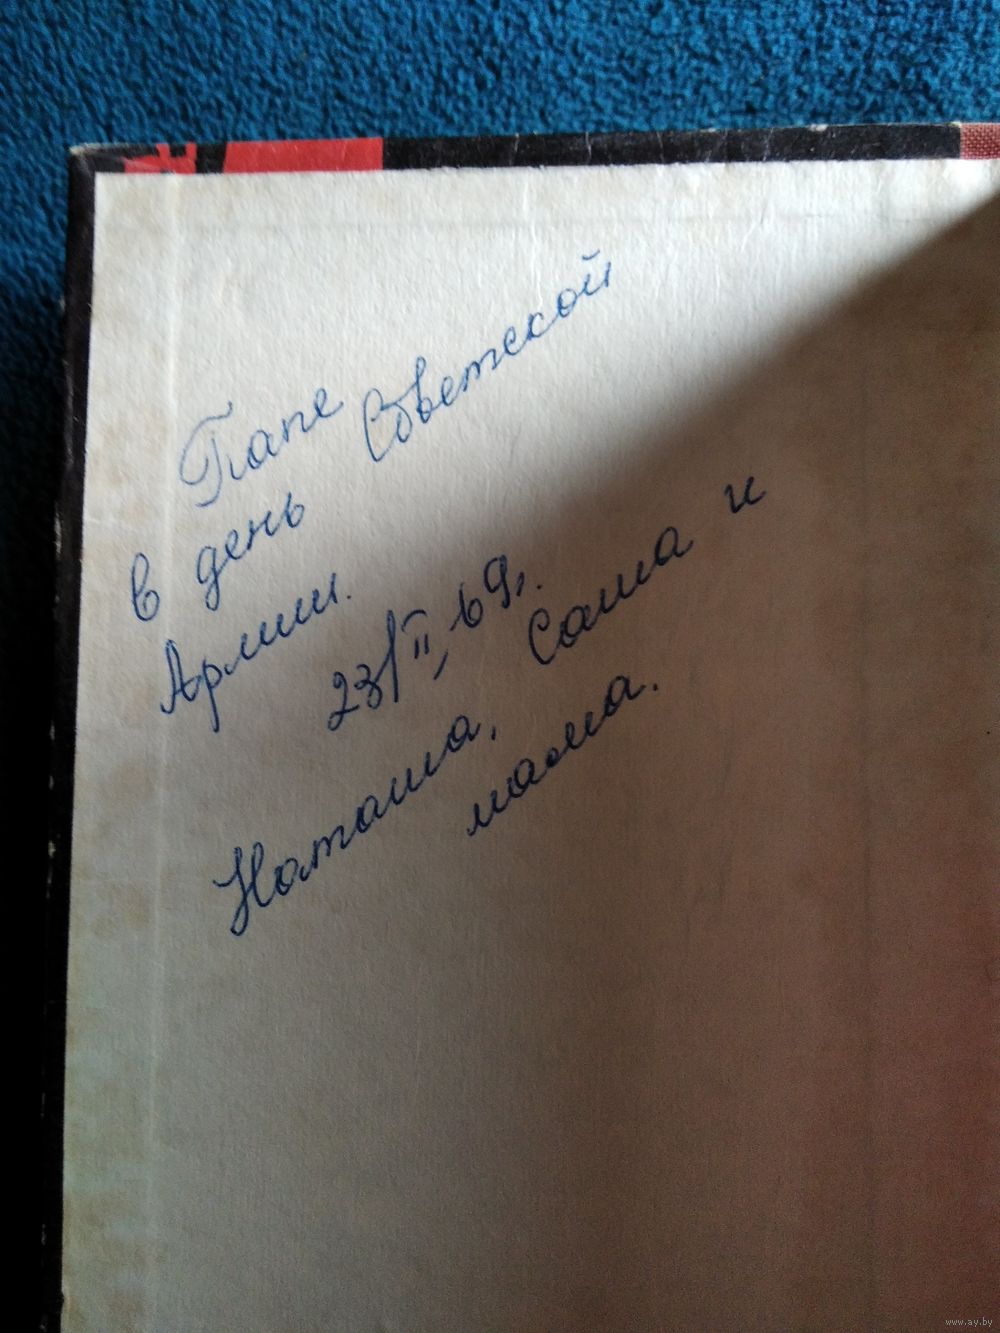 Папе
в день Советской
Армии.
23/II, 69г.
Наташа, Саша и
мама.
www.ay.by